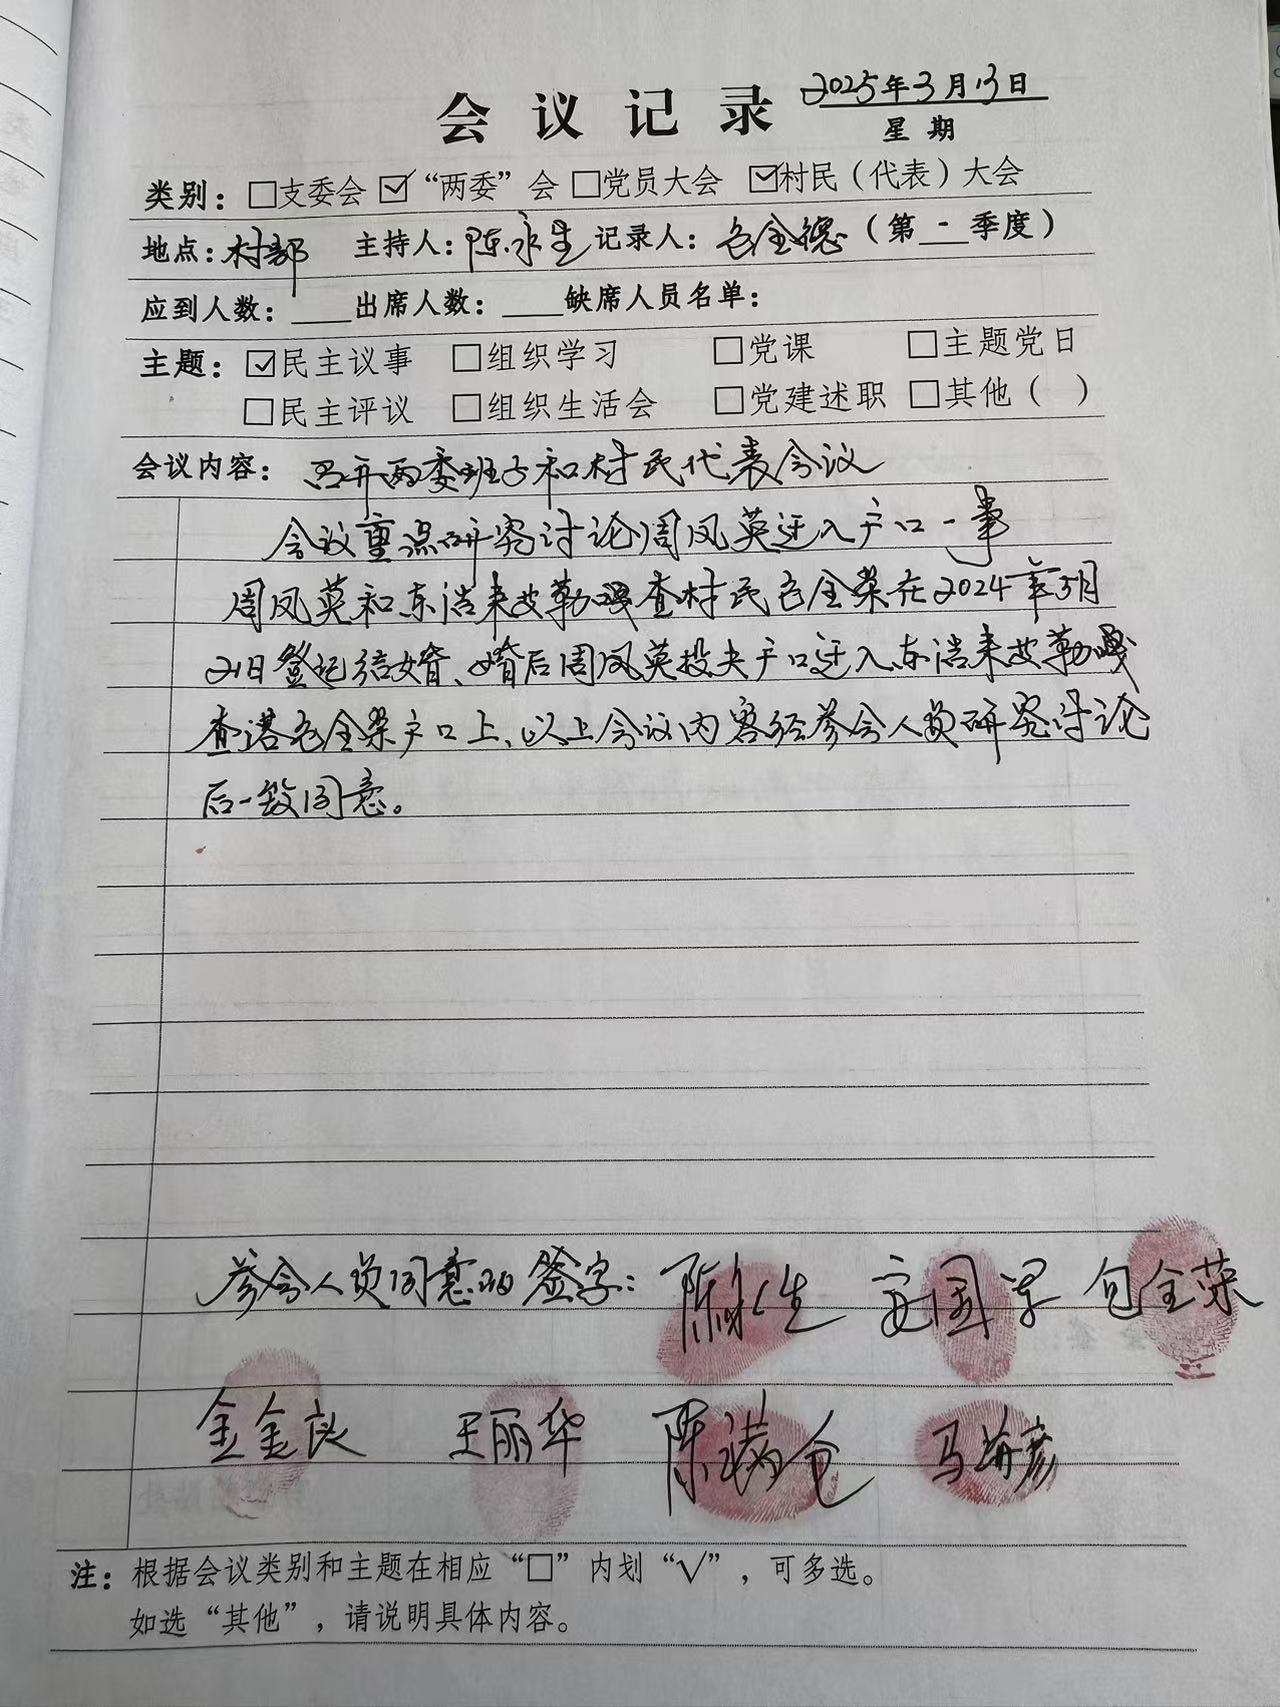 会议记录 2025年3月13日
星期
类别：□支委会 ☑“两委”会 □党员大会 ☑村民（代表）大会
地点：村部 主持人：陈永生 记录人：包金德（第一季度）
应到人数：____出席人数：____缺席人员名单：
主题：☑民主议事 □组织学习 □党课 □主题党日
□民主评议 □组织生活会 □党建述职 □其他（ ）
会议内容：召开两委班子和村民代表会议
会议重点研究讨论周凤英迁入户口一事
周凤英和东浩来艾勒嘎查村民包全荣在2024年3月
21日登记结婚、婚后周凤英投夫户口迁入东浩来艾勒嘎
查诺包全荣户口上、以上会议内容经参会人员研究讨论
后一致同意。
参会人员同意的签字：陈永生 安国军 包全荣
金金良 王丽华 陈满仓 马海彦
注：根据会议类别和主题在相应“□”内划“√”，可多选。
如选“其他”，请说明具体内容。